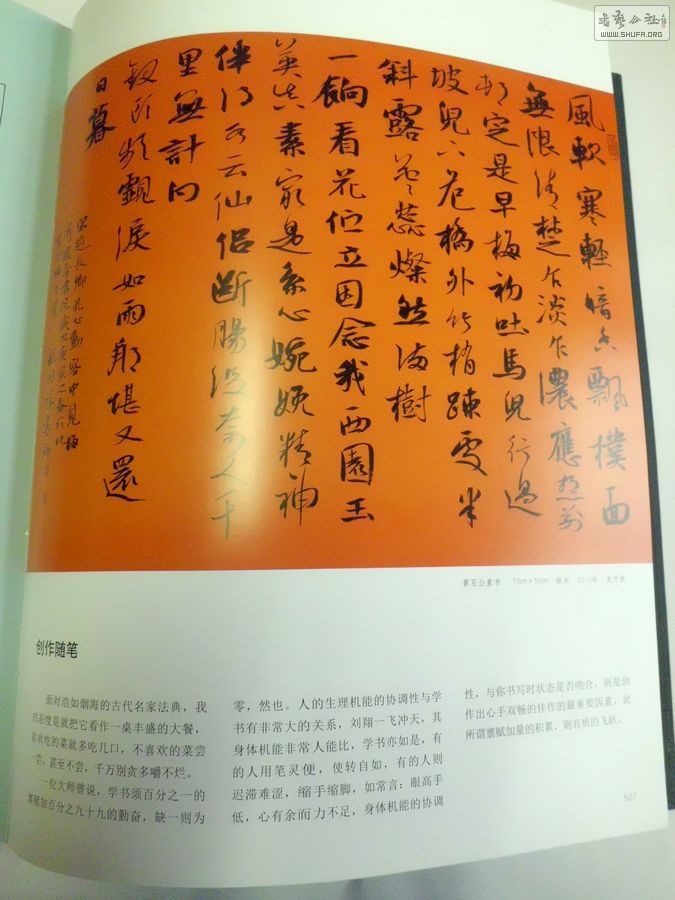 書藝公社
WWW.SHUFA.ORG
風軟寒輕暗香飄撲面
無限清楚乍淡乍濃應想前
村定是早梅初吐馬兒行過
坡兒下危橋外竹梢疎處半
斜露花蕊燦然滿樹
一餉看花佇立因念我西園玉
英真素最是系心婉娩精神
伴得水云仙侶斷腸沒奈人千
里無計向
釵頭頻覷淚如雨那堪又還
日暮
宋趙長卿花心動客中見梅
黄石公素书 70cm×50cm 纸本 2010年
创作随笔
面对浩如烟海的古代名家法典，我
的态度是就把它看作一桌丰盛的大餐，
喜欢吃的菜就多吃几口，不喜欢的菜尝
一尝，甚至不尝，千万别贪多嚼不烂。
一位大师曾说，学书须百分之一的
禀赋加百分之九十九的勤奋，缺一则为
零，然也。人的生理机能的协调性与学
书有非常大的关系，刘翔一飞冲天，其
身体机能非常人能比，学书亦如是，有
的人用笔灵便，使转自如，有的人则
迟滞难涩，缩手缩脚，如常言：眼高手
低，心有余而力不足，身体机能的协调
性，与你书写时状态是否吻合，则是创
作出心手双畅的佳作的最重要因素，此
所谓禀赋加量的积累，则有质的飞跃。
507